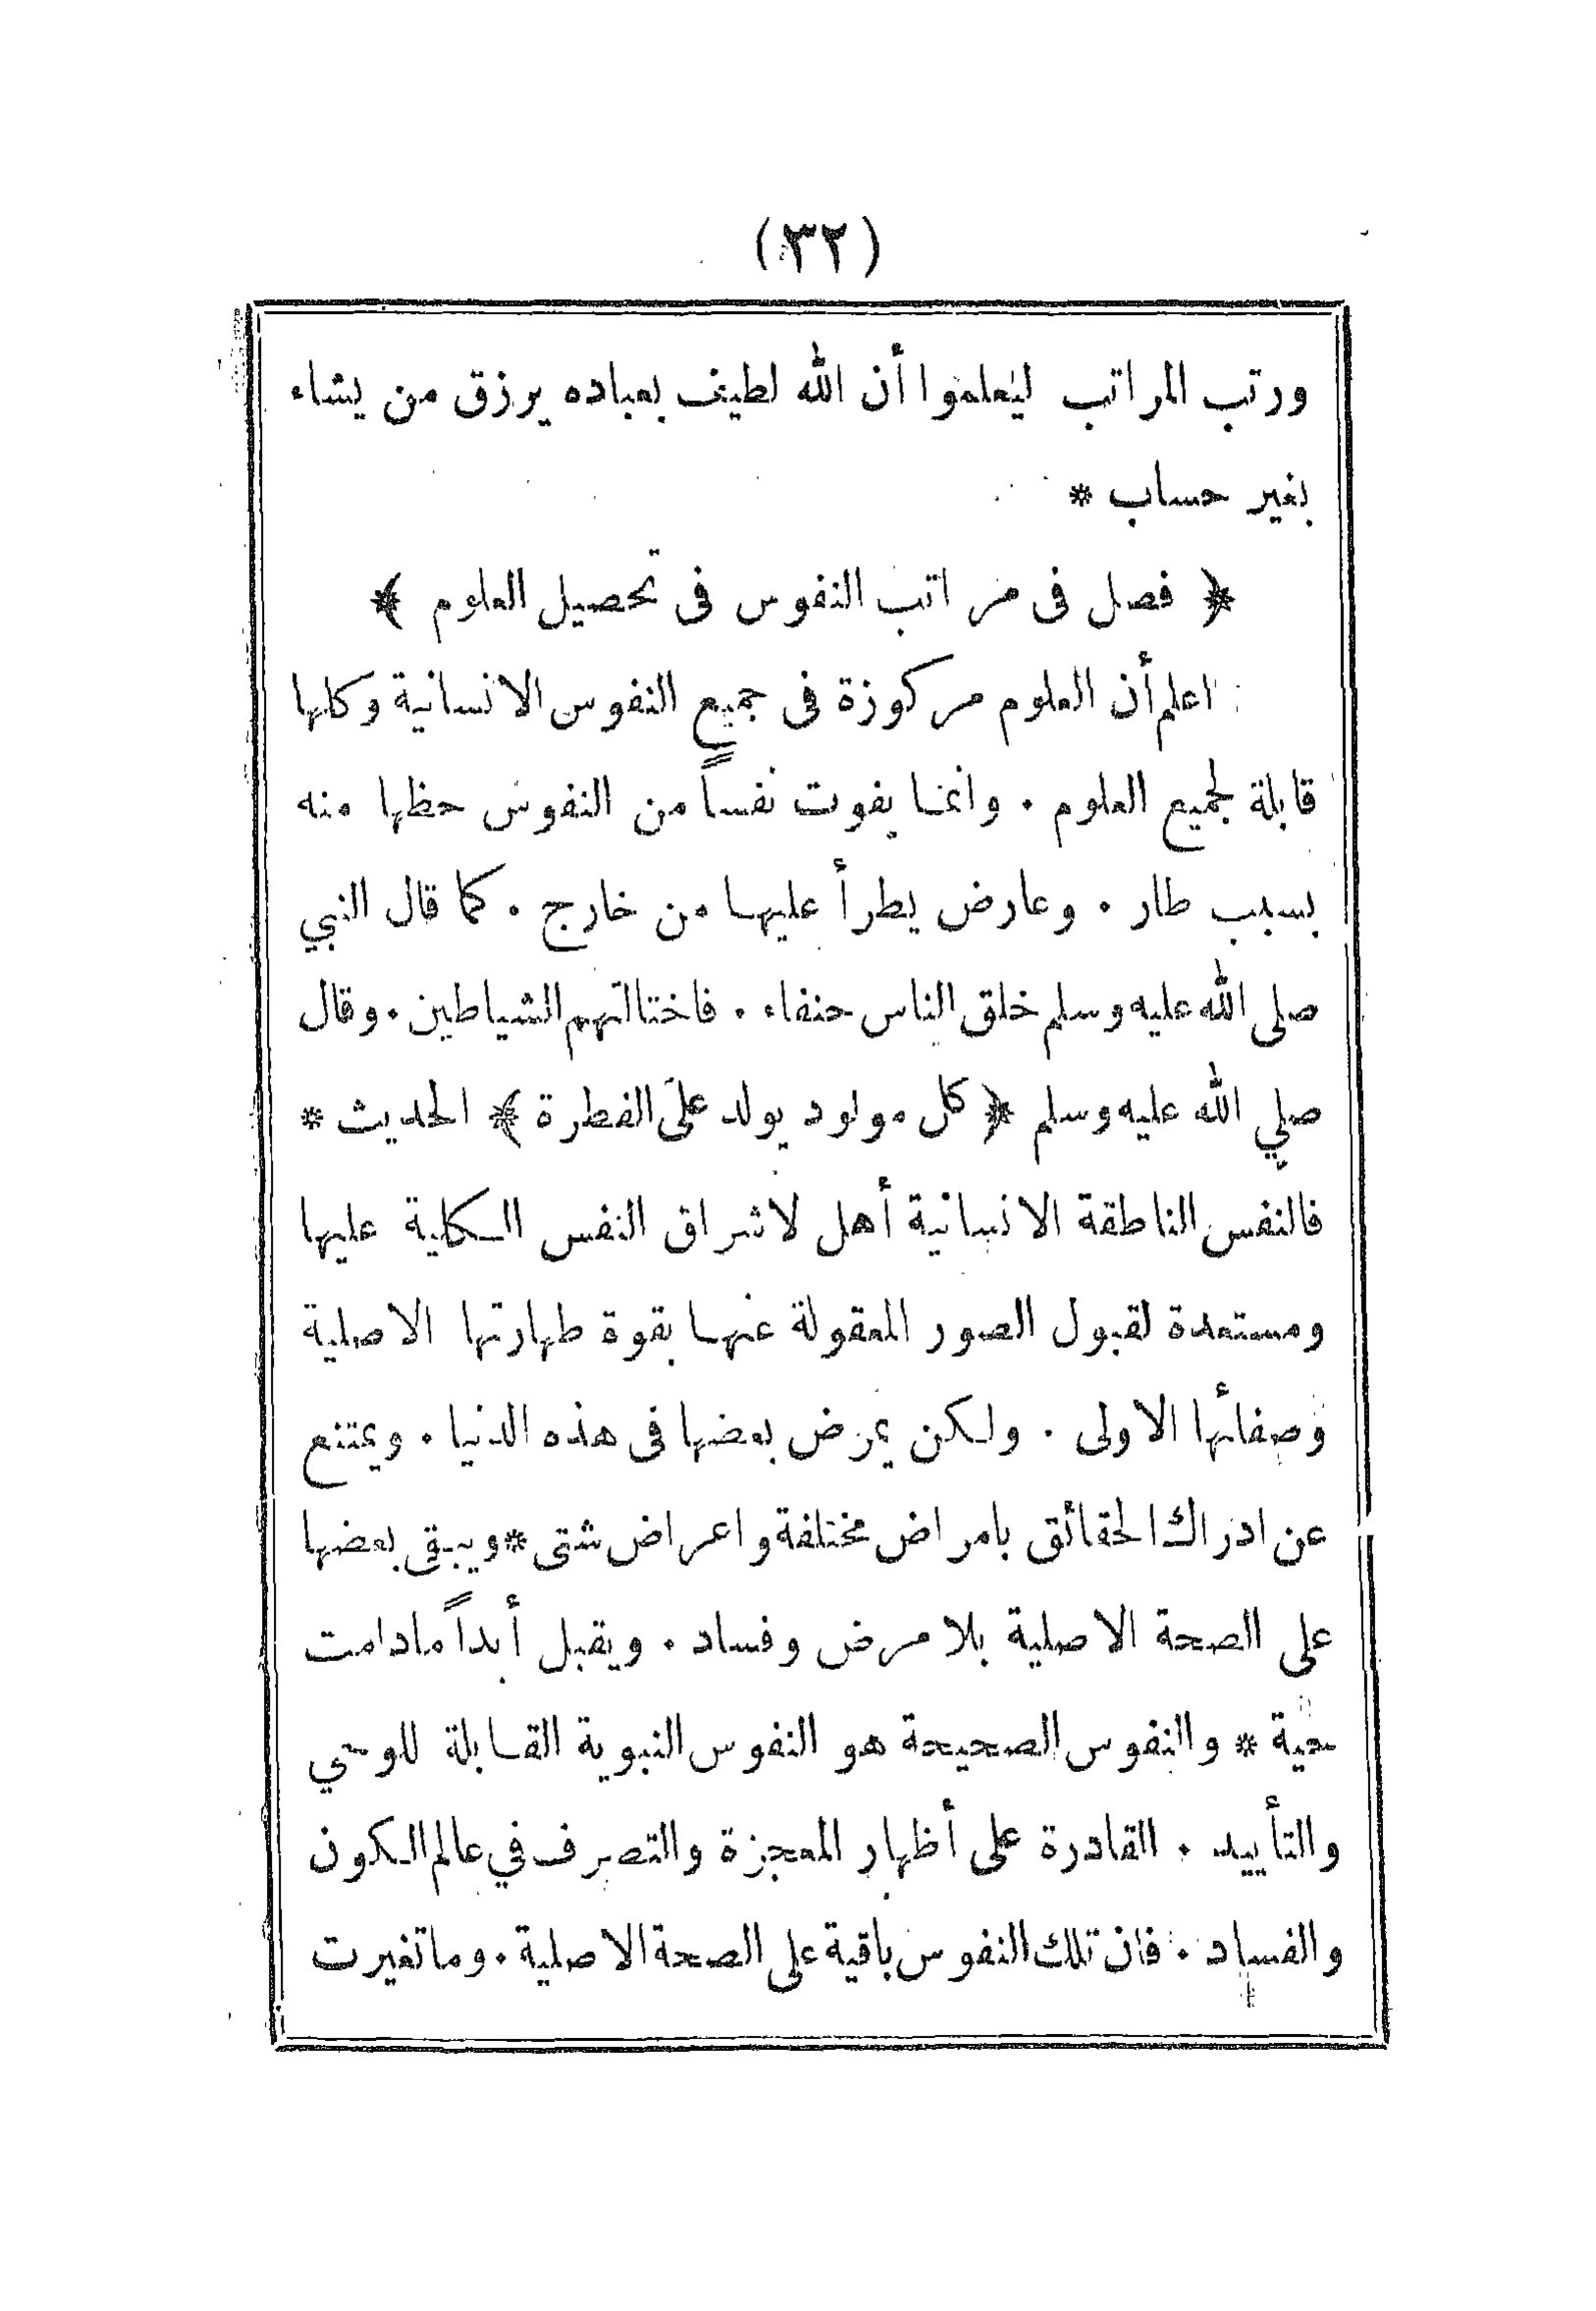 (٣٢)
ورتب المراتب ليعلموا أن الله لطيف بعباده يرزق من يشاء
بغير حساب *
﴿ فصل فى مراتب النفوس فى تحصيل العلوم ﴾
اعلم أن العلوم مركوزة فى جميع النفوس الانسانية وكلها
قابلة لجميع العلوم . وانما يفوت نفساً من النفوس حظها منه
بسبب طار . وعارض يطرأ عليها من خارج . كما قال النبي
صلى الله عليه وسلم خلق الناس حنفاء . فاختالتهم الشياطين . وقال
صلي الله عليه وسلم ﴿ كل مولود يولد على الفطرة ﴾ الحديث *
فالنفس الناطقة الانسانية أهل لاشراق النفس الكلية عليها
ومستعدة لقبول الصور المعقولة عنها بقوة طهارتها الاصلية
وصفائها الاولى . ولكن يمرض بعضها فى هذه الدنيا . ويمتنع
عن ادراك الحقائق بامراض مختلفة واعراض شتى * ويبقى بعضها
على الصحة الاصلية بلا مرض وفساد . ويقبل أبداً مادامت
حية * والنفوس الصحيحة هو النفوس النبوية القابلة للوحي
والتأييد . القادرة على أظهار المعجزة والتصرف في عالم الكون
والفساد . فان تلك النفوس باقية على الصحة الاصلية . وما تغيرت